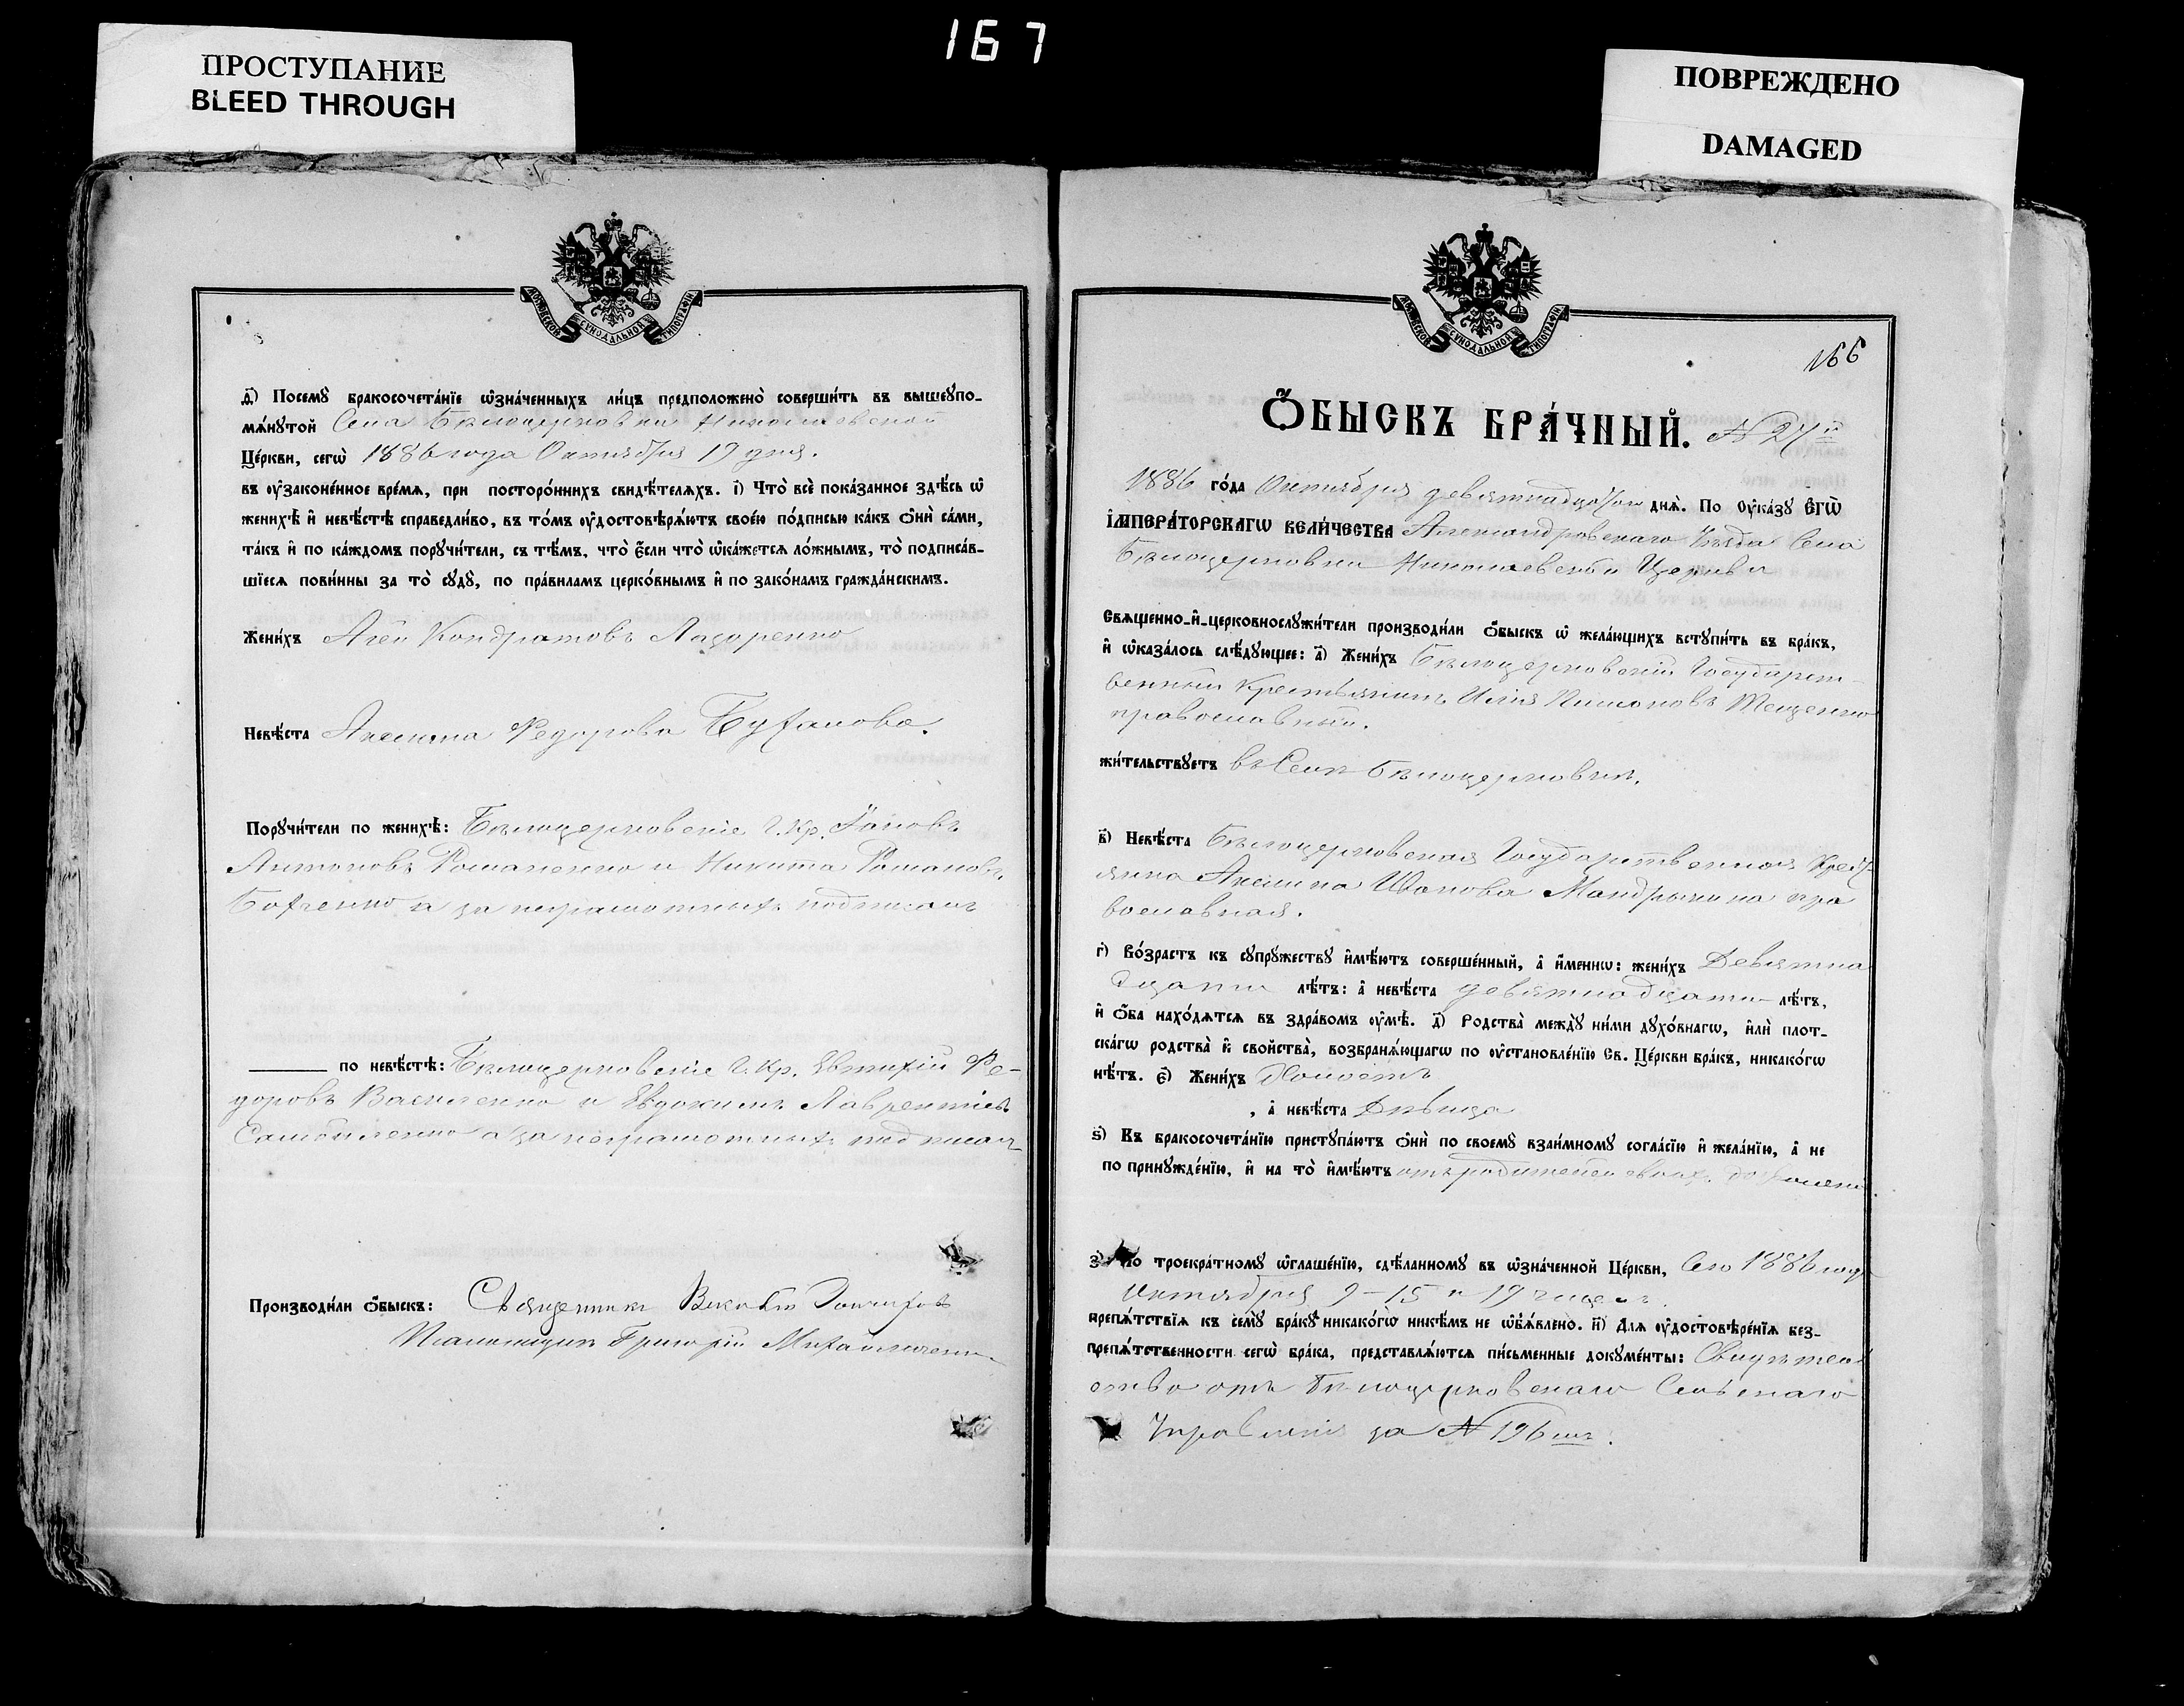 167
ПРОСТУПАНИЕ
BLEED THROUGH
ПОВРЕЖДЕНО
DAMAGED
МОСКОВСКОЙ СѴНОДАЛЬНОЙ ТИПОГРАФІИ
д҃) Посемꙋ̀ бракосочета́нїе ѡ҆зна́ченныхъ ли́цъ предположено̀ соверши́ть въ вышеꙋпо-
мѧ́нꙋтой Села Бѣлоцерковки Николаевской
Це́ркви, сегѡ̀ 1886 года Октября 19 дня.
въ ᲂу҆зако́ненное вре́мѧ, при посторо́ннихъ свидѣ́телѧхъ. і҃) Что̀ всѐ пока́занное здѣ́сь ѡ҆
женихѣ̀ и҆ невѣ́стѣ справедли́во, въ то́мъ ᲂу҆достовѣрѧ́ютъ свое́ю по́дписью ка́къ ѻ҆нѝ са́ми,
та́къ и҆ по ка́ждомъ порꙋчи́тели, съ тѣ́мъ, что̀ є҆́сли что̀ ѡ҆ка́жетсѧ ло́жнымъ, то̀ подписа́в-
шїесѧ пови́нны за то̀ сꙋдꙋ̀, по пра́виламъ церко́внымъ и҆ по зако́намъ гражда́нскимъ.
Жени́хъ Агей Кондратовъ Лазоренко
Невѣ́ста Акилина Федорова Буханова.
Порꙋчи́тели по женихѣ̀: Бѣлоцерковскіе Г. Кр. Іаковъ
Антоновъ Романенко и Никита Романовъ
а за неграмотныхъ подписалъ
по невѣ́стѣ: Бѣлоцерковскіе Г. Кр. Евтихій Фе-
доровъ Василенко и Евдокимъ Лаврентіевъ
Самойленко а за неграмотныхъ подписалъ
Производи́ли ѻ҆́быскъ: Священникъ
Псаломщикъ Григорій
166
МОСКОВСКОЙ СѴНОДАЛЬНОЙ ТИПОГРАФІИ
Ѻ҆́БЫСКЪ БРА́ЧНЫЙ. № 27й
1886 го́да Октября девятнадцатого днѧ̀. По ᲂу҆ка́зꙋ Е҆гѡ̀
І҆МПЕРА́ТОРСКАГѠ ВЕЛИ́ЧЕСТВА Александровскаго Уѣзда Села
Бѣлоцерковки Николаевской Церкви
Свѧще́нно-и҆-церковнослꙋжи́тели производи́ли ѻ҆́быскъ ѡ҆ жела́ющихъ встꙋпи́ть въ бра́къ,
и҆ ѡ҆каза́лось слѣ́дꙋющее: а҃) Жени́хъ Бѣлоцерковскій Государст-
венный Крестьянинъ Илія Пимоновъ Тещенко
православный.
жи́тельствꙋетъ въ Селѣ Бѣлоцерковкѣ.
в҃) Невѣ́ста Бѣлоцерковская Государственная Крест-
янка Акилина Мандрыкина пра
вославная.
г҃) Во́зрастъ къ сꙋпрꙋ́жествꙋ и҆мѣ́ютъ соверше́нный, а҆ и҆́меннѡ: жени́хъ Девятна
дцати лѣ́тъ: а҆ невѣ́ста девятнадцати лѣ́тъ,
и҆ ѻ҆́ба нахо́дѧтсѧ въ здра́вомъ ᲂу҆мѣ̀. д҃) Родства̀ междꙋ̀ ни́ми дꙋхо́внагѡ, и҆лѝ плот-
ска́гѡ родства̀ и҆ свойства̀, возбранѧ́ющагѡ по ᲂу҆становле́нїю Св. Це́ркви бра́къ, никако́гѡ
нѣ́тъ. є҃) Жени́хъ Холостъ
, а҆ невѣ́ста Дѣвица
ѕ҃) Къ бракосочета́нїю пристꙋпа́ютъ ѻ҆нѝ по своемꙋ̀ взаи́мномꙋ согла́сїю и҆ жела́нїю, а҆ не
по принꙋжде́нїю, и҆ на то̀ и҆мѣ́ютъ отъ родителей своихъ дозволеніе.
з҃) По троекра́тномꙋ ѡ҆глаше́нїю, сдѣ́ланномꙋ въ ѡ҆зна́ченной Це́ркви, Сего 1886 года
Октября 9 – 15 и 19 чиселъ.
препѧ́тствїѧ къ семꙋ̀ бра́кꙋ никако́гѡ никѣ́мъ не ѡ҆б̾ѧ́влено. и҃) Длѧ ᲂу҆достовѣре́нїѧ без-
препѧ́тственности сегѡ̀ бра́ка, представлѧ́ютсѧ пи́сьменные докꙋме́нты: Свидѣтель
ство отъ Бѣлоцерковскаго Сельскаго
Управленія за № 196мъ.